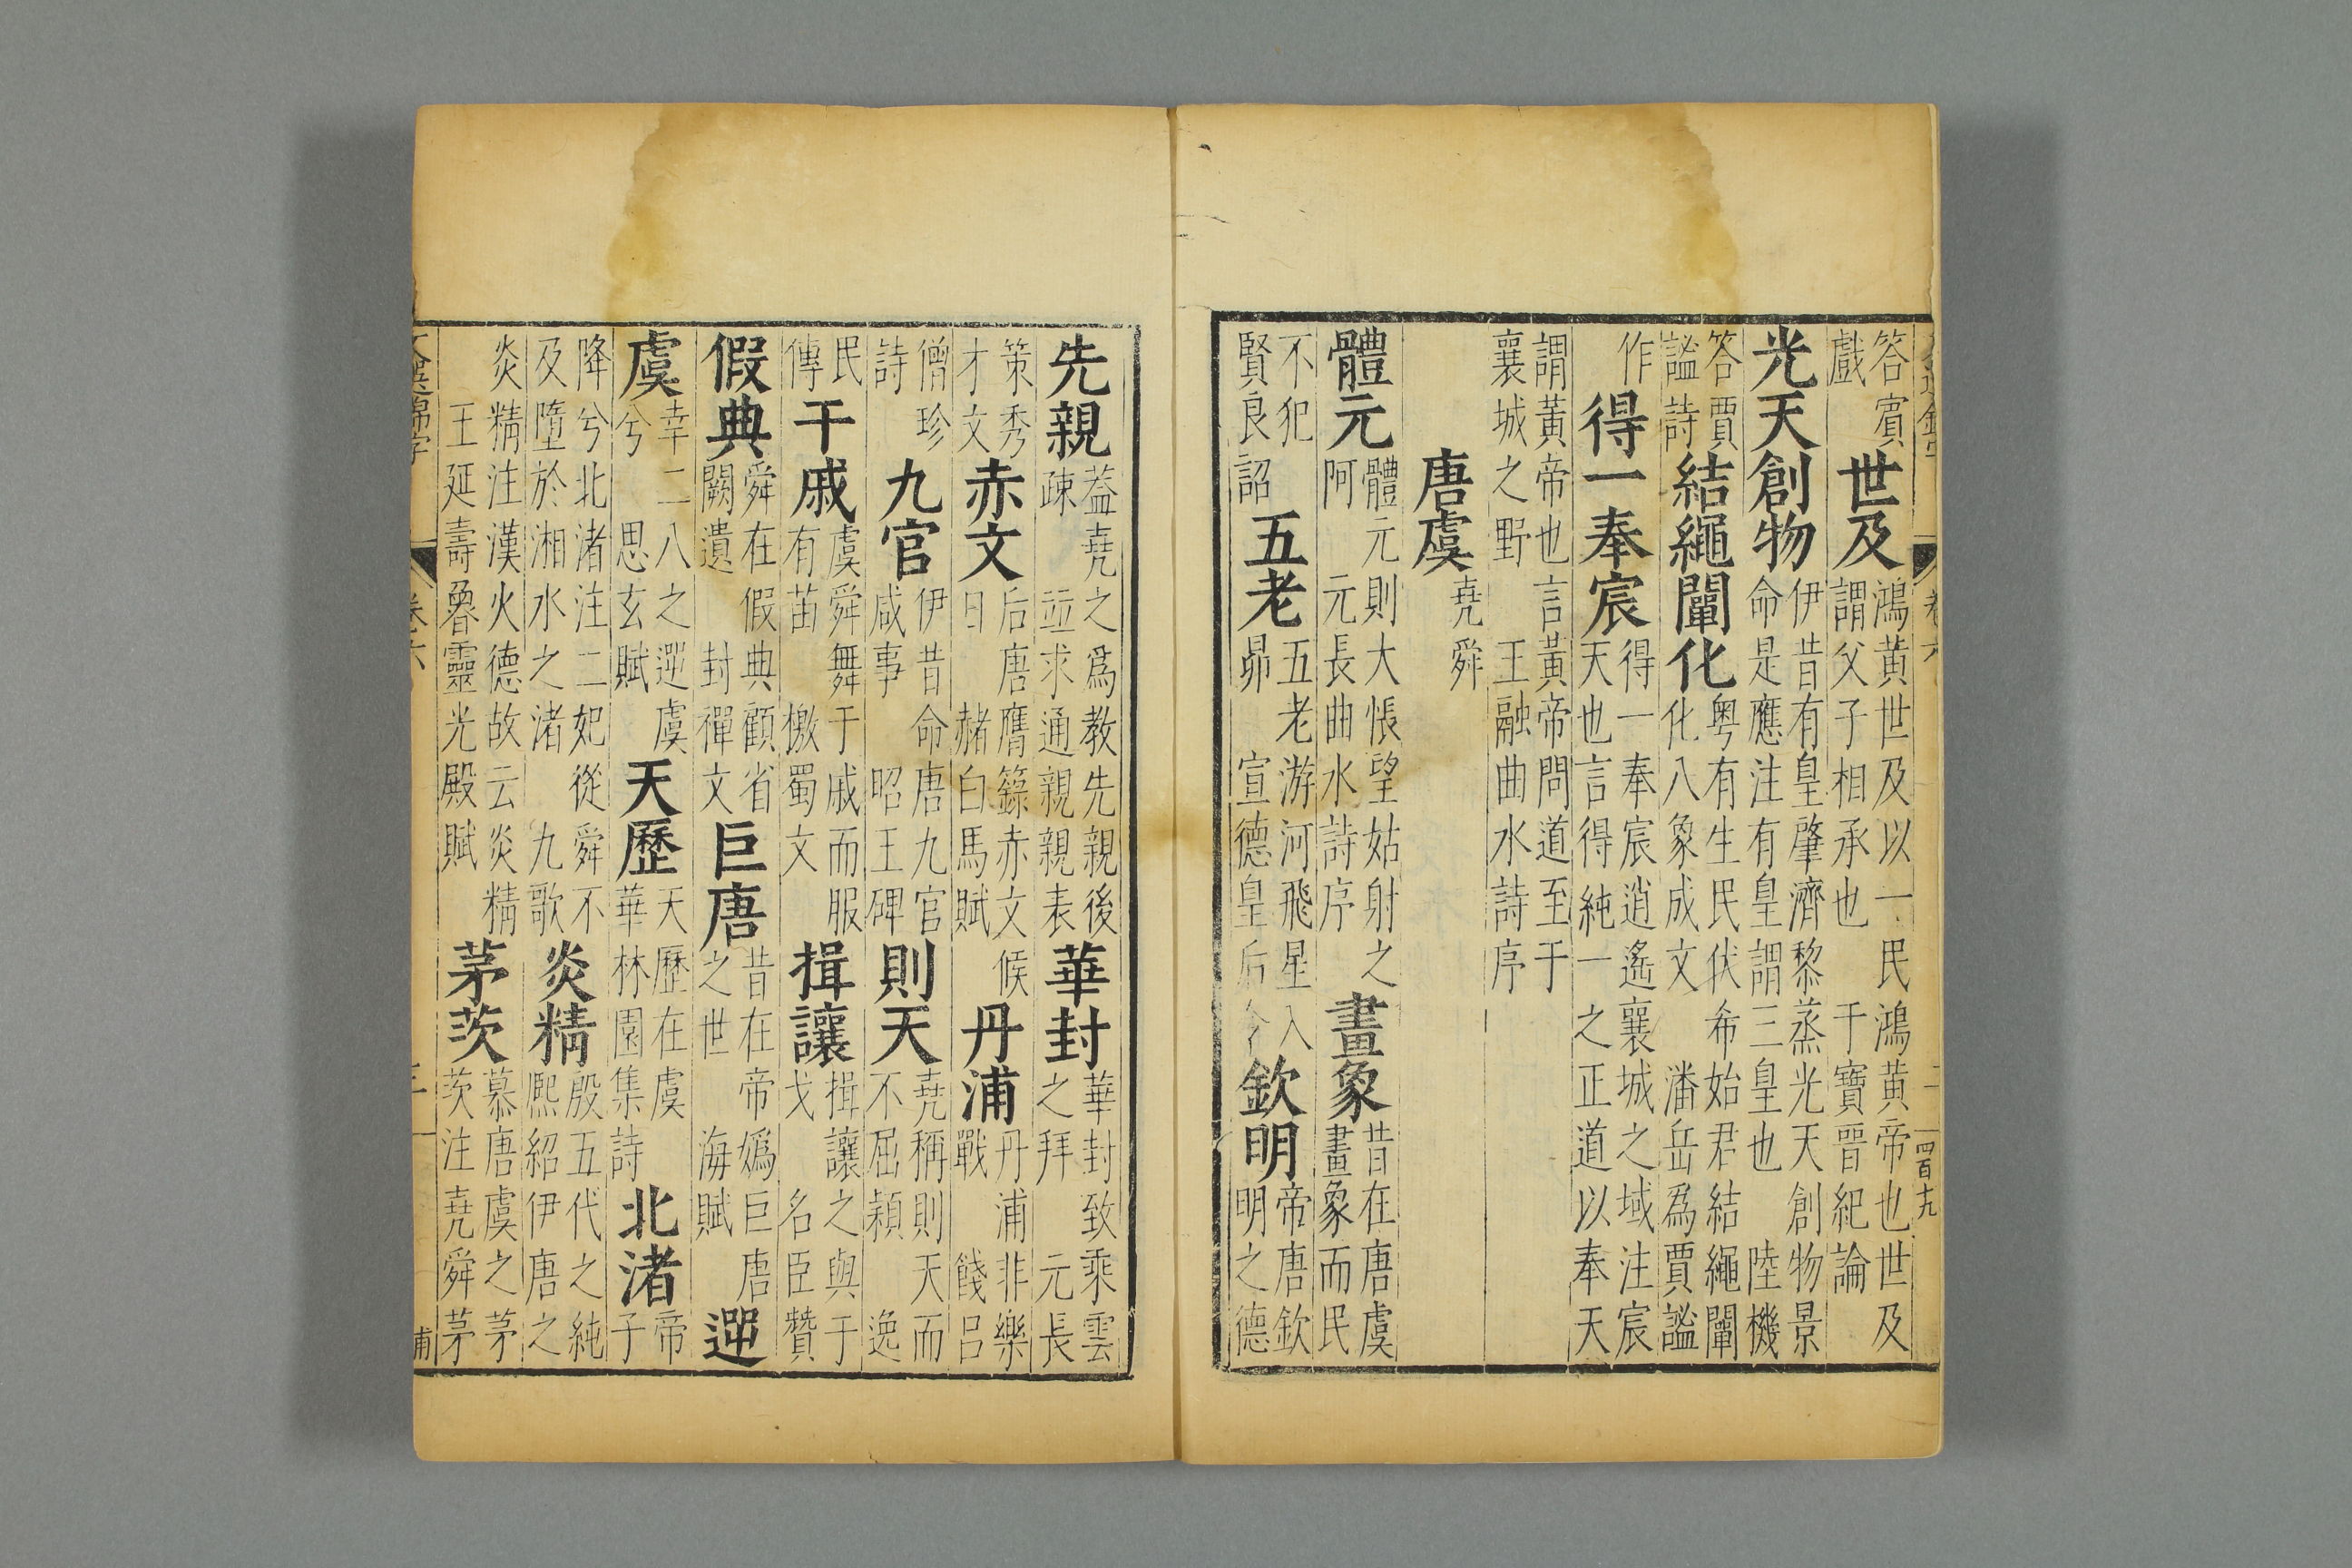 卷六 二 四百十九
答賓戲 世及 鴻黃世及以一民鴻黃帝也世及謂父子相承也 干寶晉紀論
光天創物 伊昔有皇肇濟黎蒸光天創物景命是應注有皇謂三皇也 陸機
答賈謐詩 結繩闡化 粤有生民伏希始君結繩闡化八象成文 潘岳爲賈謐
作 得一奉宸 得一奉宸逍遙襄城之域注宸天也言得純一之正道以奉天
謂黃帝也言黃帝問道至于襄城之野 王融曲水詩序
唐虞 堯舜
體元 體元則大悵望姑射之阿 元長曲水詩序 畫象 昔在唐虞畫象而民
不犯 賢良詔 五老 五老游河飛星入昴 宣德皇后令 欽明 帝唐欽明之德
先親 葢堯之爲教先親後疎 竝求通親親表 華封 華封致乘雲之拜 元長
策秀才文 赤文 后唐膺籙赤文候日 赭白馬賦 丹浦 丹浦非樂戰 餞呂
僧珍詩 九官 伊昔命唐九官咸事 昭王碑 則天 堯稱則天而不屈穎 逸
民傳 干戚 虞舜舞于戚而服有苗 檄蜀文 揖讓 揖讓之與于戈 名臣贊
假典 舜在假典顧省闕遺 封禪文 巨唐 昔在帝嬀巨唐之世 海賦 遻
虞 幸二八之遻虞兮 思玄賦 天歷 天歷在虞 華林園集詩 北渚 帝子
降兮北渚注二妃從舜不及墮於湘水之渚 九歌 炎精 殷五代之純熙紹伊唐之
炎精注漢火德故云炎精 王延壽魯靈光殿賦 茅茨 慕唐虞之茅茨注堯舜茅
文選錦字 卷六 三